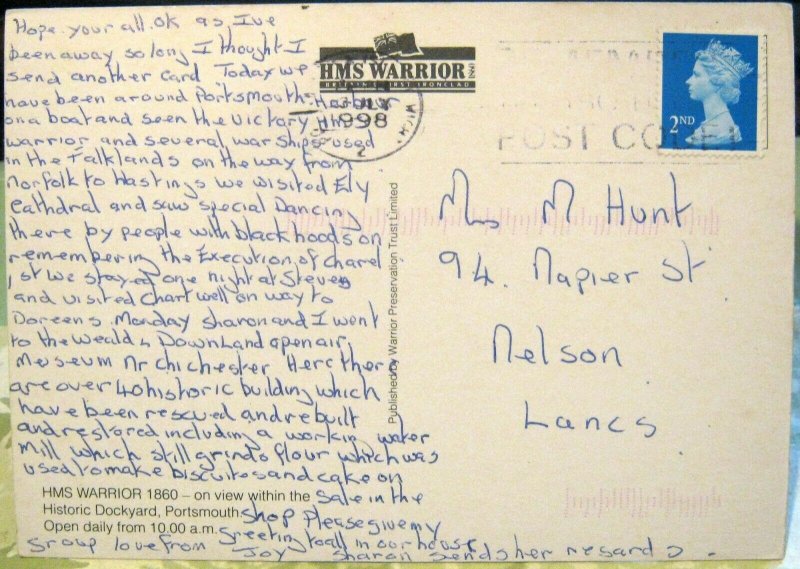 Hope your all ok as I've
been away so long I thought I
send another card Today we
have been around Portsmouth Harbour
on a boat and seen the Victory HMS
warrior and several war ships used
in the Falklands on the way from
Norfolk to Hastings we wisited Ely
Cathdral and saw special Dancing
there by people with black hoods on
remembering the Execution of Charel
1st we stayed one night at Steves
and visited Chartwell on way to
Doreens Monday Sharon and I went
to the weald & Downland open air
Museum Nr chichester Here there
are over 40 historic building which
have been rescued and rebuilt
and restored including a working water
mill which still grinds flour which was
used to make biscuits and cake on
sale in the
shop Please give my
greeting to all in our house
group love from Joy Sharon sends her regards.
HMS WARRIOR 1860
BRITAIN'S FIRST IRONCLAD
1998
POST CODE
2ND
Mrs M Hunt
94. Napier St
Nelson
Lancs
Published by Warrior Preservation Trust Limited
HMS WARRIOR 1860 – on view within the
Historic Dockyard, Portsmouth
Open daily from 10.00 a.m.